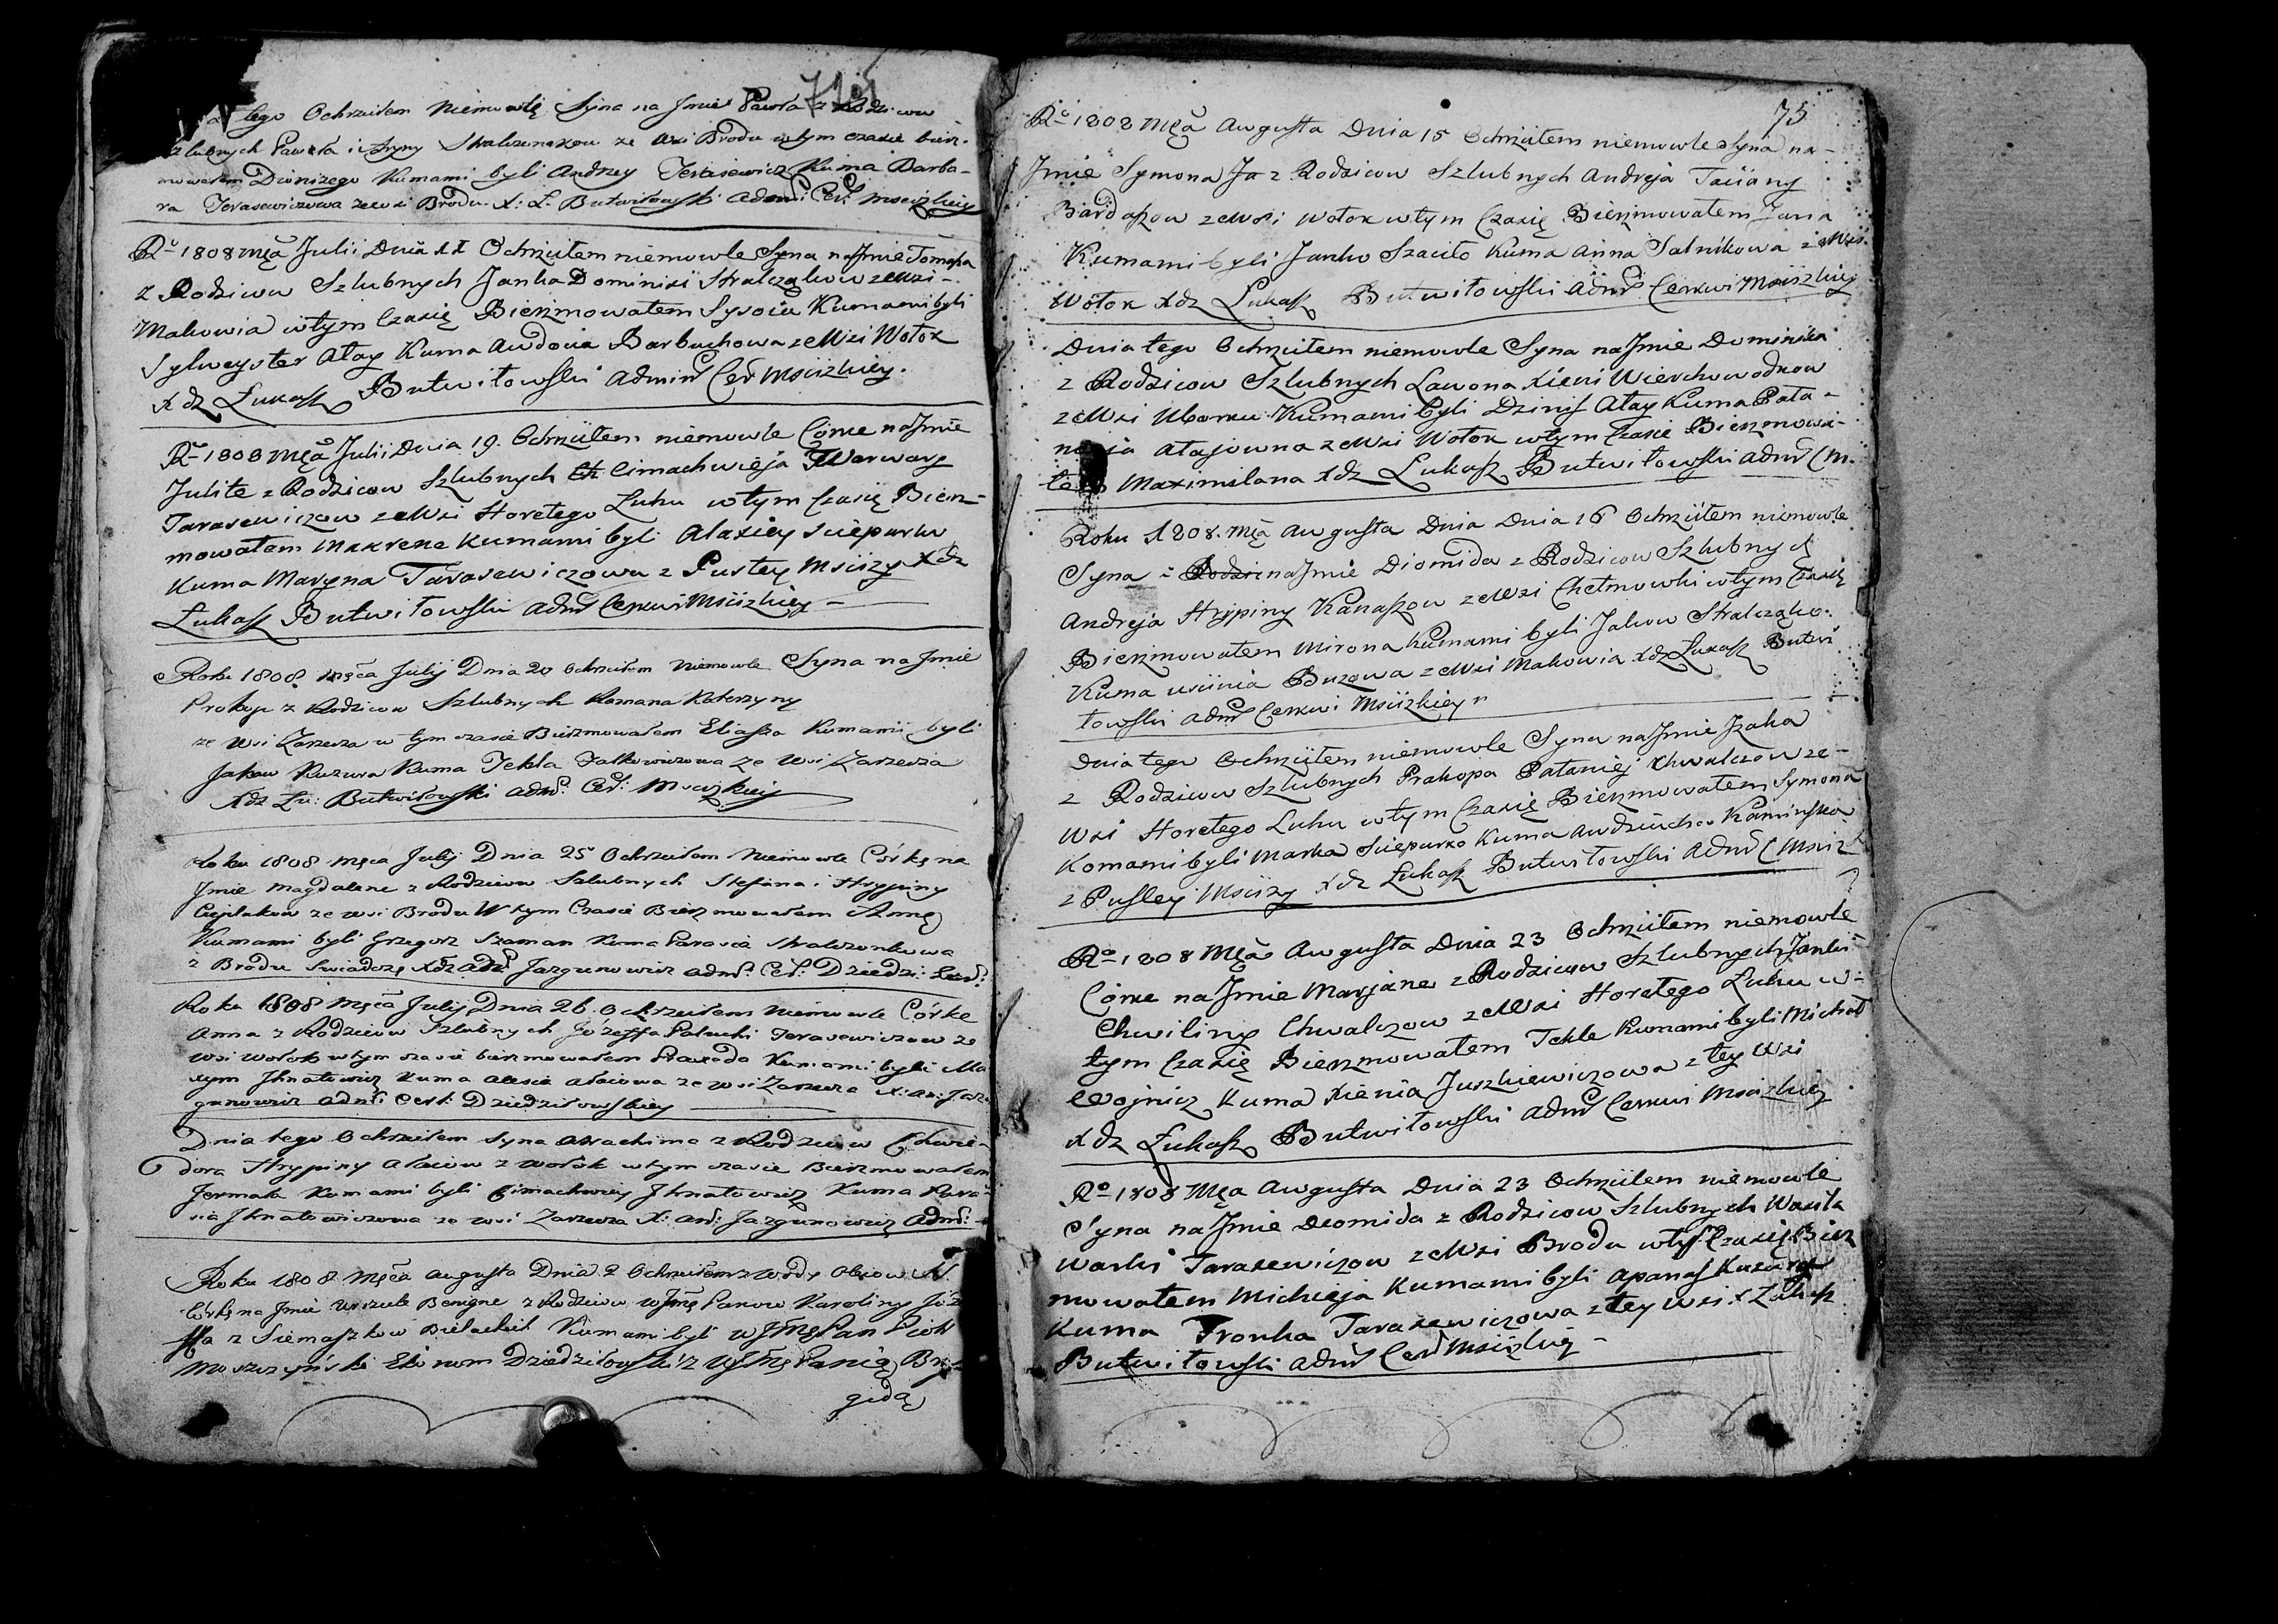 tego Ochrzciłem Niemowlę Syna na Jmie Pawła z Rodziców
Szlubnych Pawła i Aryny Stralczonakow ze Wsi Brodu wtym czasie bierz-
mowałem Dionizego Kumami byli Andrzey Terasewicz Kuma Barba-
ra Terasewiczowa zewsi Brodu. X: Ł. Butwiłowski Adm: Cer: Msciżkiey
Rº 1808 Mca Julii Dnia Ochrzciłem niemowle Syna na Jmie Tomasza
z Rodzicow Szlubnych Janka Dominiki Stralczakow zeWsi-
Makowia wtym Czasię Bierzmowałem Sysoia Kumami byli
Sylweyster Ałay Kuma Awdocia Barbuchowa zeWsi Wołok
Xdz Łukasz Butwiłowski Admr Cer Msciżkiey.
Rº 1808 Mca Julii Dnia 19. Ochrzciłem niemowle Córke na Jmie
Julite z Rodzicow Szlubnych Cimachwieja Warwary
Tarasewiczow zeWsi Horełego Łuhu wtym Czasię Bierz-
mowałem Makrene Kumami byli Alaxiey Sciepurko
Kuma Maryna Tarasewiczowa z Pustey Msciży Xdz
Łukasz Butwiłowski Admr Cerkwi Msciżkiey -
Roku 1808 Mcęa Julij Dnia 20 Ochrzciłem Niemowle Syna na Jmie
Prokop z Rodzicow Szlubnych Romana Katerzyny
ze Wsi Zarzecza w tym czasie Bierzmowałem Eliasza Kumami byli
Jakow Kuzura Kuma Tekla Fałkowiczowa ze Wsi Zarzecza
Xdz Łu: Butwiłowski Adm: Cer: Msciżkiey
Roku 1808 Mcęa Julij Dnia 25 Ochrzciłem Niemowle Córkę na
Jmie Magdalene z Rodzicow Szlubnych Stefana i Hrypiny
Cieplakow ze wsi Brodu W tym Czasie Bierzmowałem Annę
Kumami byli Grzegorz Szaman Kuma Parasia Stralczonkowa
z Brodu Swiadczę Xdz Jazgunowicz Adm: Cer: Dziedzi:
Roku 1808 Mcęa Julij Dnia 26 Ochrzciłem Niemowle Córke
Anna z Rodzicow Szlubnych Józeffa Pałachi Terasewiczow ze
Wsi Wołok wtym czasie bierzmowałem Kumami byli Ma
xym Jhnatowicz Kuma Alesia Ałaiowa ze wsi Zarzecza X: An: Jaz
gunowicz Adm: Cer: Dziedziłowskiey
Dnia tego Ochrzciłem Syna z Rodzicow Chwie-
dora Hrypiny Ałaiow z Wołok wtym czasie Bierzmowałem
Jermała Kumami byli Cimachwiey Jhnatowicz Kuma Para-
sia Jhnatowiczowa ze wsi Zarzecza X: And: Jazgunowicz Adm:
Roku 1808 Mcęa Augusta Dnia 2 Ochrzciłem z Wody
Córkę na Jmie Urszule Benigne z Rodzicow Panow Karoliny Józe
ffa z Siemaszkow Kumami byli Pan Piotr
Moszczyński Ekonom Dziedziłowski z Panią Bry-
gidą
75
Rº 1808 Mca Augusta Dnia 15 Ochrzciłem niemowle Syna na-
Jmie Symona z Rodzicow Szlubnych Andreja Taciany
Bardaszow zeWsi Wołok wtym Czasię Bierzmowałem Jana
Kumami byli Janko Szaciło Kuma Anna Salnikowa zeWsi
Wołok Xdz Łukasz Butwiłowski Admr Cerkwi Msciżkiey
Dnia tego Ochrzciłem niemowle Syna na Jmie Dominika
z Rodzicow Szlubnych Lawona Xieni Wierchowodkow
zeWsi Uborku Kumami byli Dzinis Ałay Kuma Pała-
Ałajowna zeWsi Wołok wtym Czasie Bierzmowa-
łe Maximilana Xdz Łukasz Butwiłowski Admr C M.
Roku 1808. Mca Augusta Dnia Dnia 16 Ochrzciłem niemowle
Syna na Jmie Diomida z Rodzicow Szlubnych
Andreja Hrypiny Kanaszow zeWsi Chełmowki wtym Czasię
Bierzmowałem Mirona Kumami byli Jakow Stralczako.
Kuma Uscinia Buzowa zeWsi Makowia Xdz Łukasz Butwi
łowski Admr Cerkwi Msciżkiey
Dnia tego Ochrzciłem niemowle Syna na Jmie Jzaka
z Rodzicow Szlubnych Prakopa Pałaniej Chwalczow ze-
Wsi Horełego Łuhu wtym Czasię Bierzmowałem Symona
Komami byli Marka Sciepurko Kuma Awdziucha Kaminska
z Pustey Msciży Xdz Łukasz Butwiłowski Admr C Msciż
Rº 1808 Mca Augusta Dnia 23 Ochrzciłem niemowle
Córke na Jmie Marjane z Rodzicow Szlubnych Janki
Chwiliny Chwalczow zeWsi Horełego Łuhu w-
tym Czasię Bierzmowałem Tekle Kumami byli Michał
Wojnicz Kuma Xienia Juszkiewiczowa z tey Wsi
Xdz Łukasz Butwiłowski Admr Cerkwi Msciżkiey
Rº 1808 Mca Augusta Dnia 23 Ochrzciłem niemowle
Syna na Jmie Deomida z Rodzicow Szlubnych Wasila
Warki Tarasewiczow zeWsi Brodu wty Czasię Bierz
mowałem Micheja Kumami byli Apanas Kuzura
Kuma Fronka Tarasewiczowa z tey Wsi X Łukasz
Butwiłowski Admr Cer Msciżkiey -